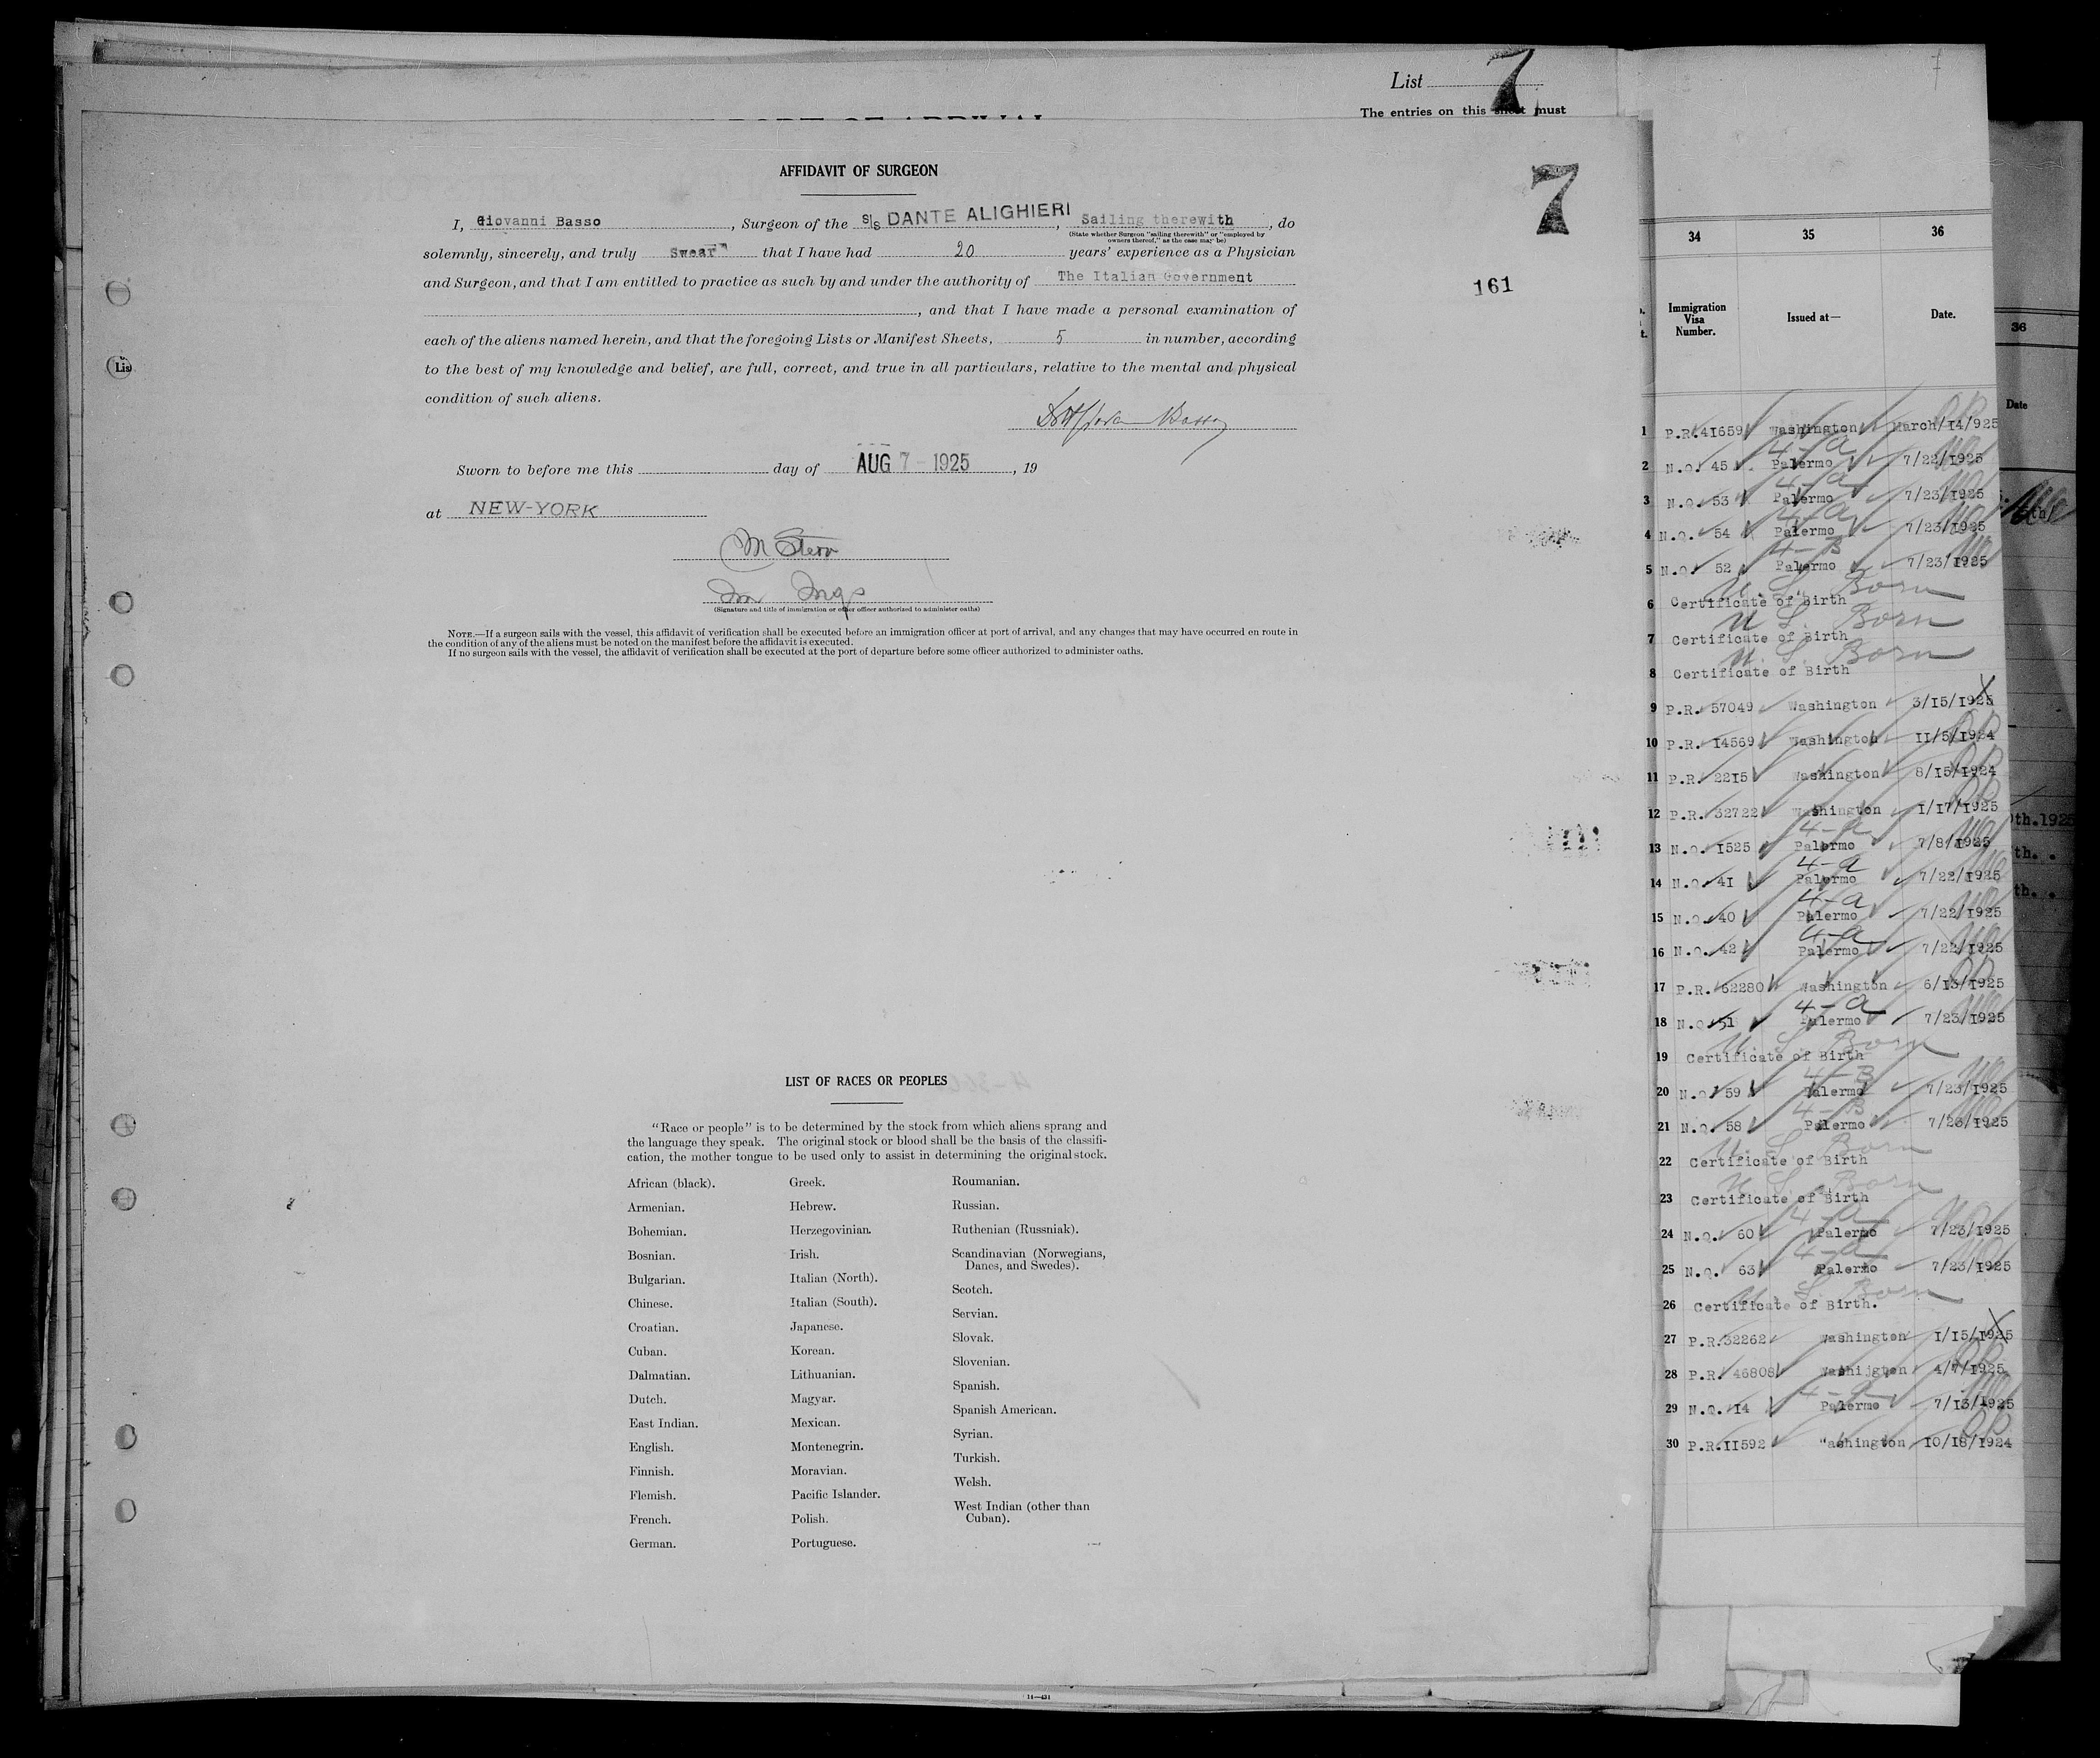 List 7
The entries on this sheet must
AFFIDAVIT OF SURGEON
7
I, Giovanni Basso, Surgeon of the S/S DANTE ALIGHIERI, Sailing therewith, do
(State whether Surgeon "sailing therewith" or "employed by
owners thereof," as the case may be)
solemnly, sincerely, and truly Swear that I have had 20 years' experience as a Physician
and Surgeon, and that I am entitled to practice as such by and under the authority of The Italian Government
161
, and that I have made a personal examination of
each of the aliens named herein, and that the foregoing Lists or Manifest Sheets, 5 in number, according
to the best of my knowledge and belief, are full, correct, and true in all particulars, relative to the mental and physical
condition of such aliens.
Sworn to before me this day of AUG 7 - 1925, 19
at NEW-YORK
M Stern
(Signature and title of immigration or other officer authorized to administer oaths)
NOTE.—If a surgeon sails with the vessel, this affidavit of verification shall be executed before an immigration officer at port of arrival, and any changes that may have occurred en route in
the condition of any of the aliens must be noted on the manifest before the affidavit is executed.
If no surgeon sails with the vessel, the affidavit of verification shall be executed at the port of departure before some officer authorized to administer oaths.
LIST OF RACES OR PEOPLES
"Race or people" is to be determined by the stock from which aliens sprang and
the language they speak. The original stock or blood shall be the basis of the classifi-
cation, the mother tongue to be used only to assist in determining the original stock.
African (black).
Armenian.
Bohemian.
Bosnian.
Bulgarian.
Chinese.
Croatian.
Cuban.
Dalmatian.
Dutch.
East Indian.
English.
Finnish.
Flemish.
French.
German.
Greek.
Hebrew.
Herzegovinian.
Irish.
Italian (North).
Italian (South).
Japanese.
Korean.
Lithuanian.
Magyar.
Mexican.
Montenegrin.
Moravian.
Pacific Islander.
Polish.
Portuguese.
Roumanian.
Russian.
Ruthenian (Russniak).
Scandinavian (Norwegians,
Danes, and Swedes).
Scotch.
Servian.
Slovak.
Slovenian.
Spanish.
Spanish American.
Syrian.
Turkish.
Welsh.
West Indian (other than
Cuban).
34 35 36
Immigration
Visa
Number.
Issued at—
Date.
1 P.R. 41659 Washington March/14/925
4-a
2 N.Q. 45 Palermo 7/22/1925
4-a
3 N.Q. 53 Palermo 7/23/1925
4-a
4 N.Q. 54 Palermo 7/23/1925
4-B
5 N.Q. 52 Palermo 7/23/1925
U.S. Born
6 Certificate of Birth
U.S. Born
7 Certificate of Birth
U.S. Born
8 Certificate of Birth
9 P.R. 57049 Washington 3/15/1925
10 P.R. 14569 Washington 11/5/1924
11 P.R. 2215 Washington 8/15/1924
12 P.R. 32722 Washington 1/17/1925
4-a
13 N.Q. 1525 Palermo 7/8/1925
4-a
14 N.Q. 41 Palermo 7/22/1925
4-a
15 N.Q. 40 Palermo 7/22/1925
4-a
16 N.Q. 42 Palermo 7/22/1925
17 P.R. 62280 Washington 6/13/1925
4-a
18 N.Q. 51 Palermo 7/23/1925
U.S. Born
19 Certificate of Birth
4-B
20 N.Q. 59 Palermo 7/23/1925
4-B
21 N.Q. 58 Palermo 7/23/1925
U.S. Born
22 Certificate of Birth
U.S. Born
23 Certificate of Birth
4-a
24 N.Q. 60 Palermo 7/23/1925
4-a
25 N.Q. 63 Palermo 7/23/1925
U.S. Born
26 Certificate of Birth.
27 P.R. 32262 Washington 1/15/1925
28 P.R. 46808 Washijgton 4/7/1925
4-a
29 N.Q. 14 Palermo 7/13/1925
30 P.R. 11592 "ashington 10/18/1924
36
Date
th.1925
th. .
th. .